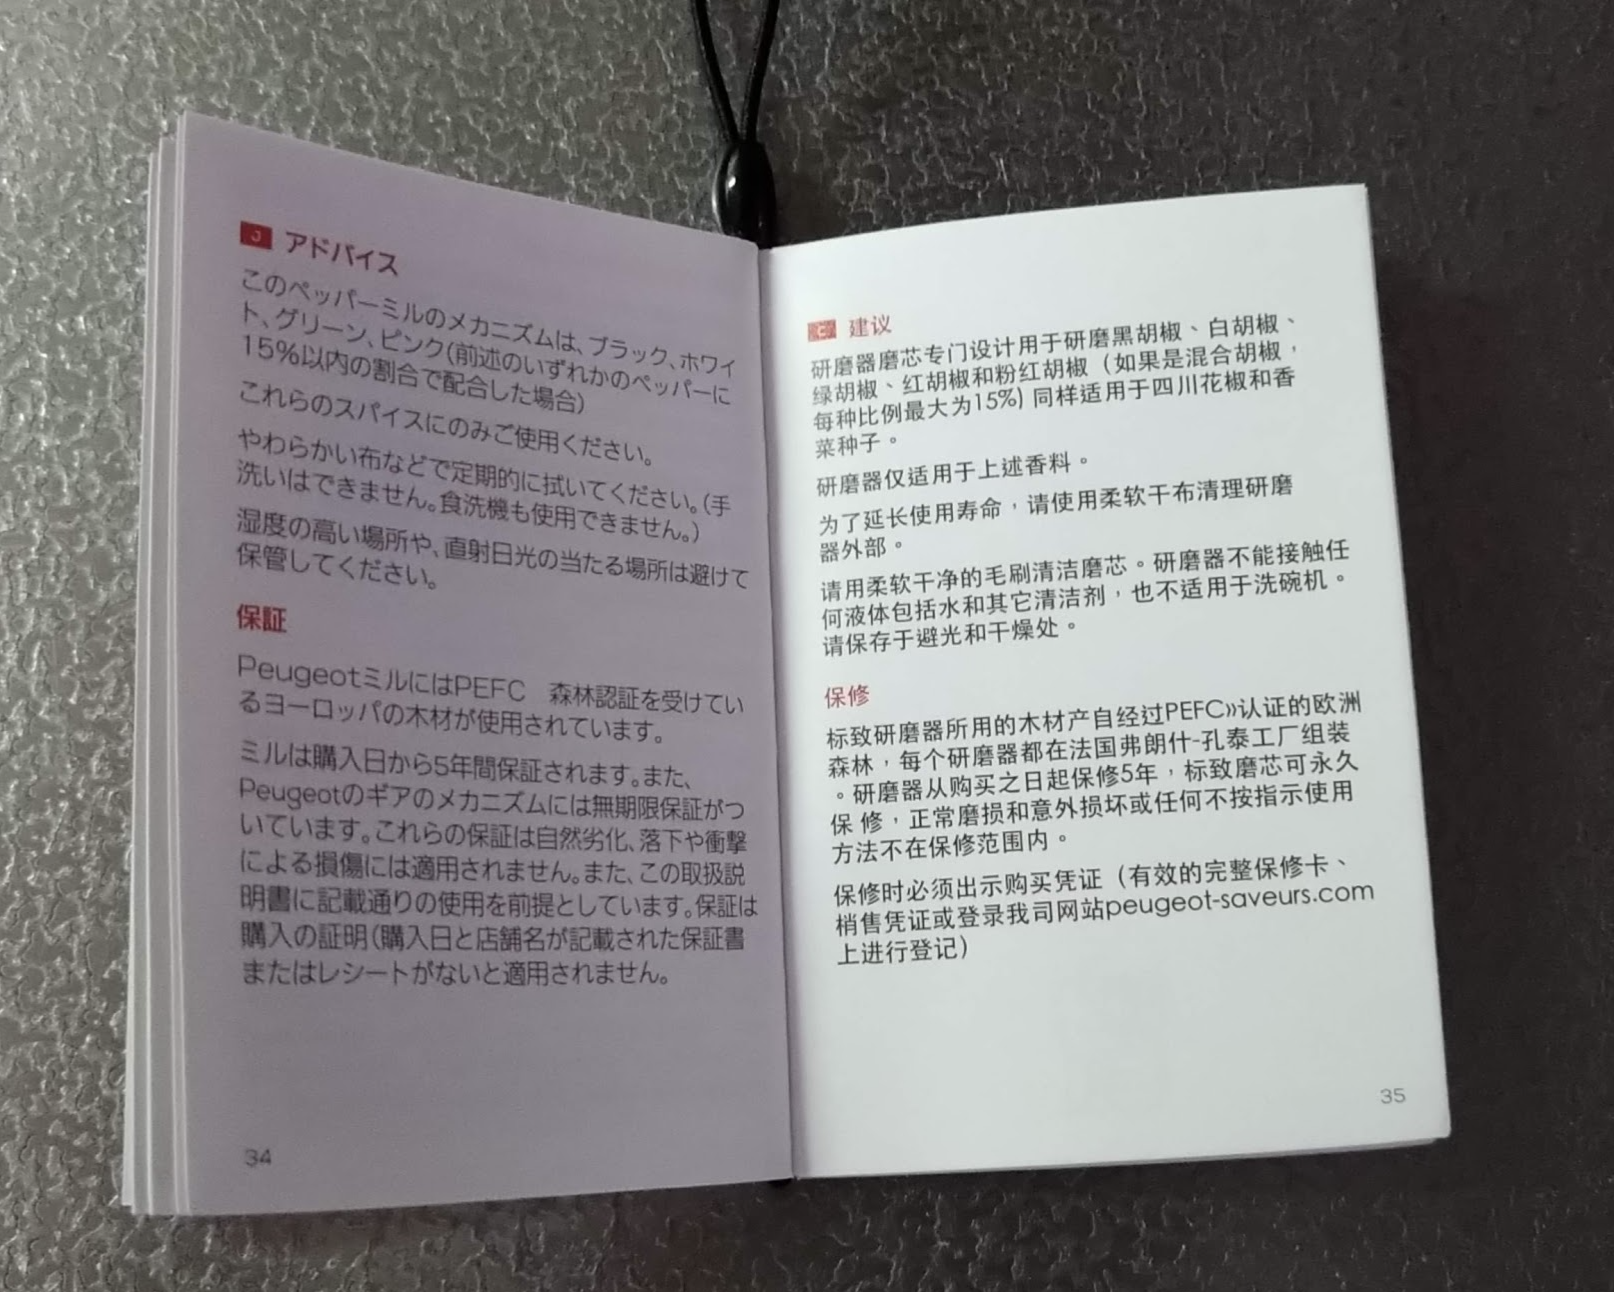 J アドバイス
このペッパーミルのメカニズムは、ブラック、ホワイ
ト、グリーン、ピンク(前述のいずれかのペッパーに
15%以内の割合で配合した場合)
これらのスパイスにのみご使用ください。
やわらかい布などで定期的に拭いてください。(手
洗いはできません。食洗機も使用できません。)
湿度の高い場所や、直射日光の当たる場所は避けて
保管してください。
保証
PeugeotミルにはPEFC　森林認証を受けてい
るヨーロッパの木材が使用されています。
ミルは購入日から5年間保証されます。また、
Peugeotのギアのメカニズムには無期限保証がつ
いています。これらの保証は自然劣化、落下や衝撃
による損傷には適用されません。また、この取扱説
明書に記載通りの使用を前提としています。保証は
購入の証明(購入日と店舗名が記載された保証書
またはレシートがないと適用されません。
34
C 建议
研磨器磨芯专门设计用于研磨黑胡椒、白胡椒、
绿胡椒、红胡椒和粉红胡椒（如果是混合胡椒，
每种比例最大为15%) 同样适用于四川花椒和香
菜种子。
研磨器仅适用于上述香料。
为了延长使用寿命，请使用柔软干布清理研磨
器外部。
请用柔软干净的毛刷清洁磨芯。研磨器不能接触任
何液体包括水和其它清洁剂，也不适用于洗碗机。
请保存于避光和干燥处。
保修
标致研磨器所用的木材产自经过PEFC»认证的欧洲
森林，每个研磨器都在法国弗朗什-孔泰工厂组装
。研磨器从购买之日起保修5年，标致磨芯可永久
保 修，正常磨损和意外损坏或任何不按指示使用
方法不在保修范围内。
保修时必须出示购买凭证（有效的完整保修卡、
梢售凭证或登录我司网站peugeot-saveurs.com
上进行登记）
35